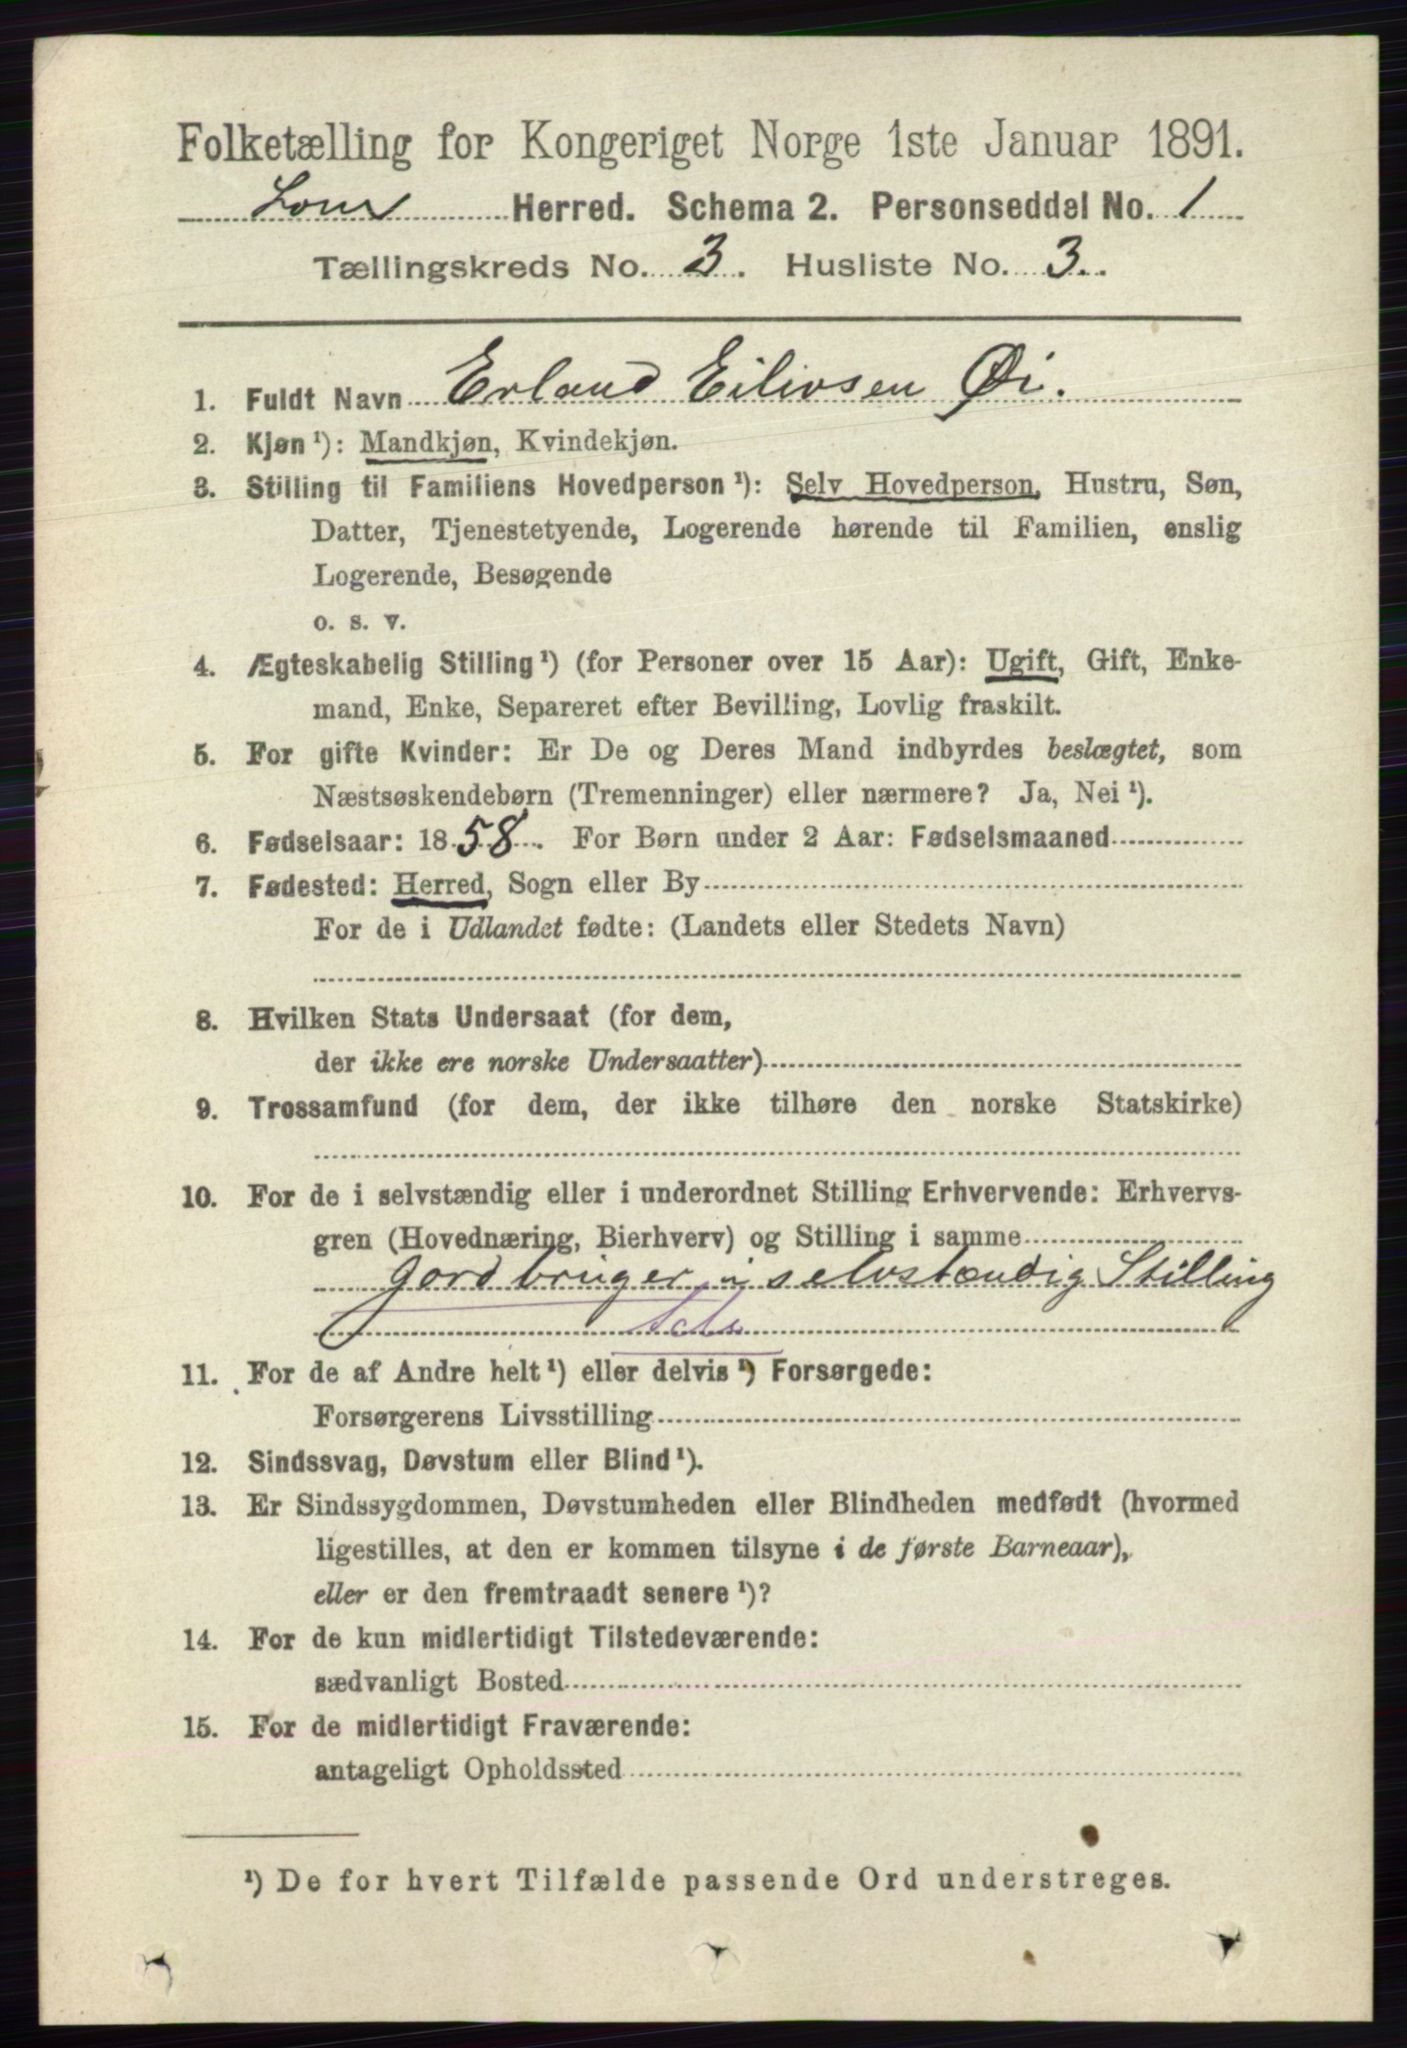 Folketælling for Kongeriget Norge 1ste Januar 1891.
Lom Herred. Schema 2. Personseddel No. 1
Tællingskreds No. 3. Husliste No. 3.
1. Fuldt Navn Erland Eilivsen Øi.
2. Kjøn ¹): Mandkjøn, Kvindekjøn.
3. Stilling til Familiens Hovedperson ¹): Selv Hovedperson, Hustru, Søn,
Datter, Tjenestetyende, Logerende hørende til Familien, enslig
Logerende, Besøgende
o. s. v.
4. Ægteskabelig Stilling ¹) (for Personer over 15 Aar): Ugift, Gift, Enke-
mand, Enke, Separeret efter Bevilling, Lovlig fraskilt.
5. For gifte Kvinder: Er De og Deres Mand indbyrdes beslægtet, som
Næstsøskendebørn (Tremenninger) eller nærmere? Ja, Nei ¹).
6. Fødselsaar: 1858. For Børn under 2 Aar: Fødselsmaaned
7. Fødested: Herred, Sogn eller By
For de i Udlandet fødte: (Landets eller Stedets Navn)
8. Hvilken Stats Undersaat (for dem,
der ikke ere norske Undersaatter)
9. Trossamfund (for dem, der ikke tilhøre den norske Statskirke)
10. For de i selvstændig eller i underordnet Stilling Erhvervende: Erhvervs-
gren (Hovednæring, Bierhverv) og Stilling i samme
Gardbruger i selvstændig Stilling
11. For de af Andre helt ¹) eller delvis ¹) Forsørgede:
Forsørgerens Livsstilling
12. Sindssvag, Døvstum eller Blind ¹).
13. Er Sindssygdommen, Døvstumheden eller Blindheden medfødt (hvormed
ligestilles, at den er kommen tilsyne i de første Barneaar),
eller er den fremtraadt senere ¹)?
14. For de kun midlertidigt Tilstedeværende:
sædvanligt Bosted
15. For de midlertidigt Fraværende:
antageligt Opholdssted
¹) De for hvert Tilfælde passende Ord understreges.